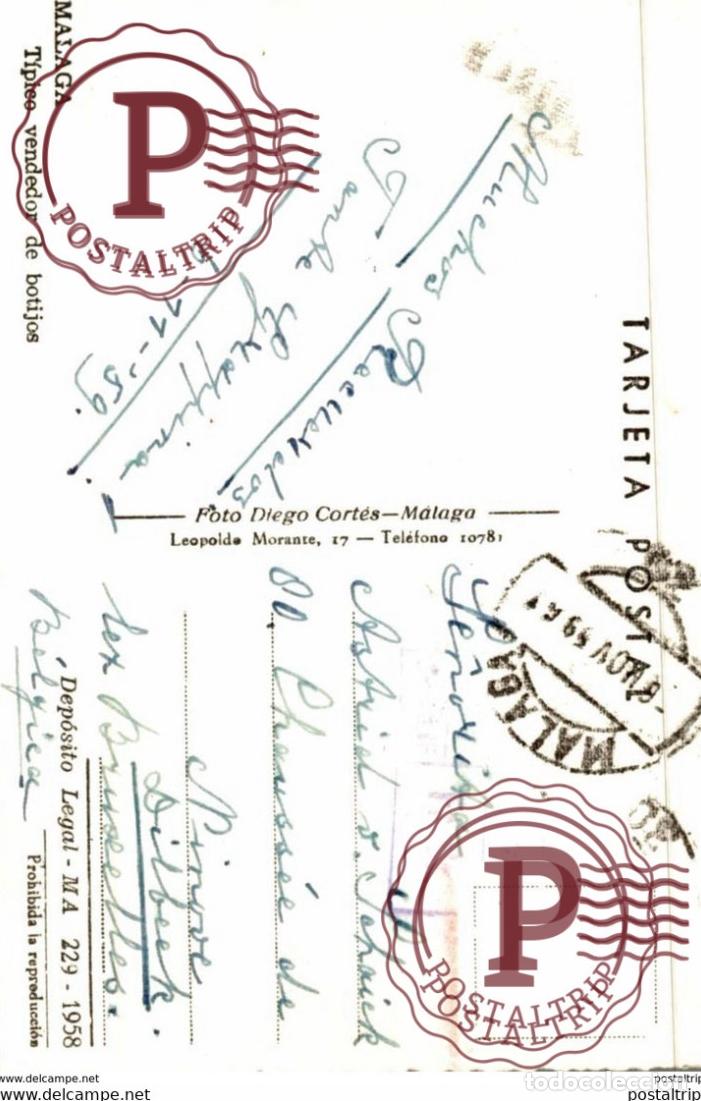 MALAGA
Típico vendedor de botijos
TARJETA POSTAL
Muchos Recuerdos
Tante
11-'59.
Foto Diego Cortés—Málaga
Leopoldo Morante, 17 — Teléfono 10781
Señorita
Astrid v. Schuick
80. Chaussée de
Ninove
Dilbeek.
lex Bruxelles.
Bélgica
Depósito Legal - MA 229 - 1958
Prohibida la reproducción
MALAGA
NOV 59
P
POSTALTRIP
P
POSTALTRIP
POSTALTRIP
www.delcampe.net
postaltrip
todocoleccion
www.delcampe.net
postaltrip